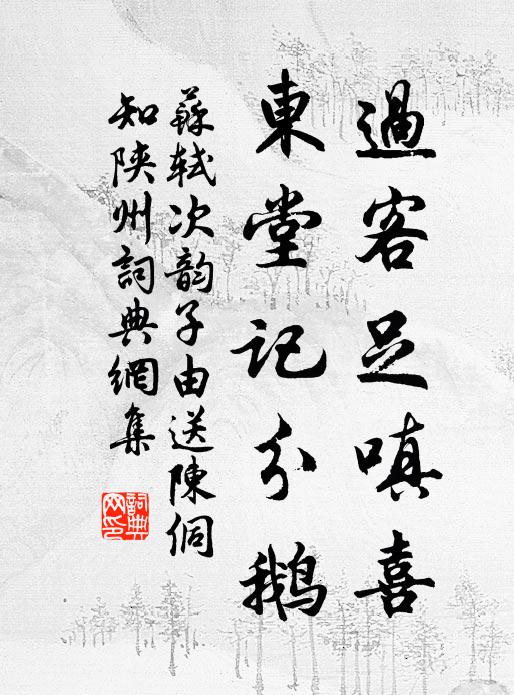 過客足嗔喜
東堂記分鵝
蘇軾次韵子由送陳侗
知陝州詞典網集
詞典网印